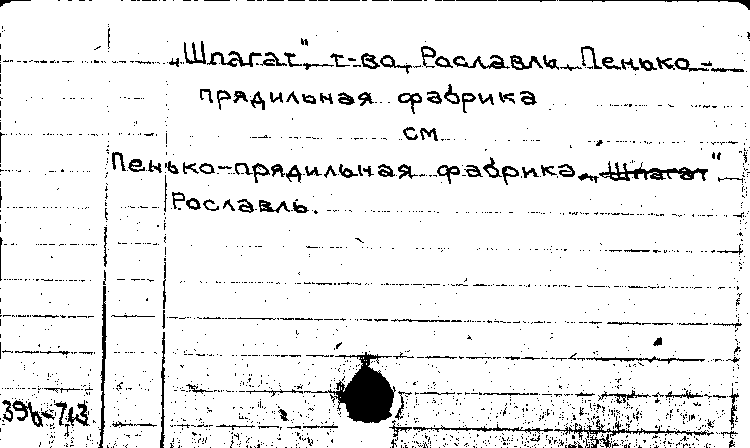 „Шпагат", т-во, Рославль. Пенько-
прядильная фабрика
см
Пенько-прядильная фабрика „Шпагат".
Рославль.
39б-713